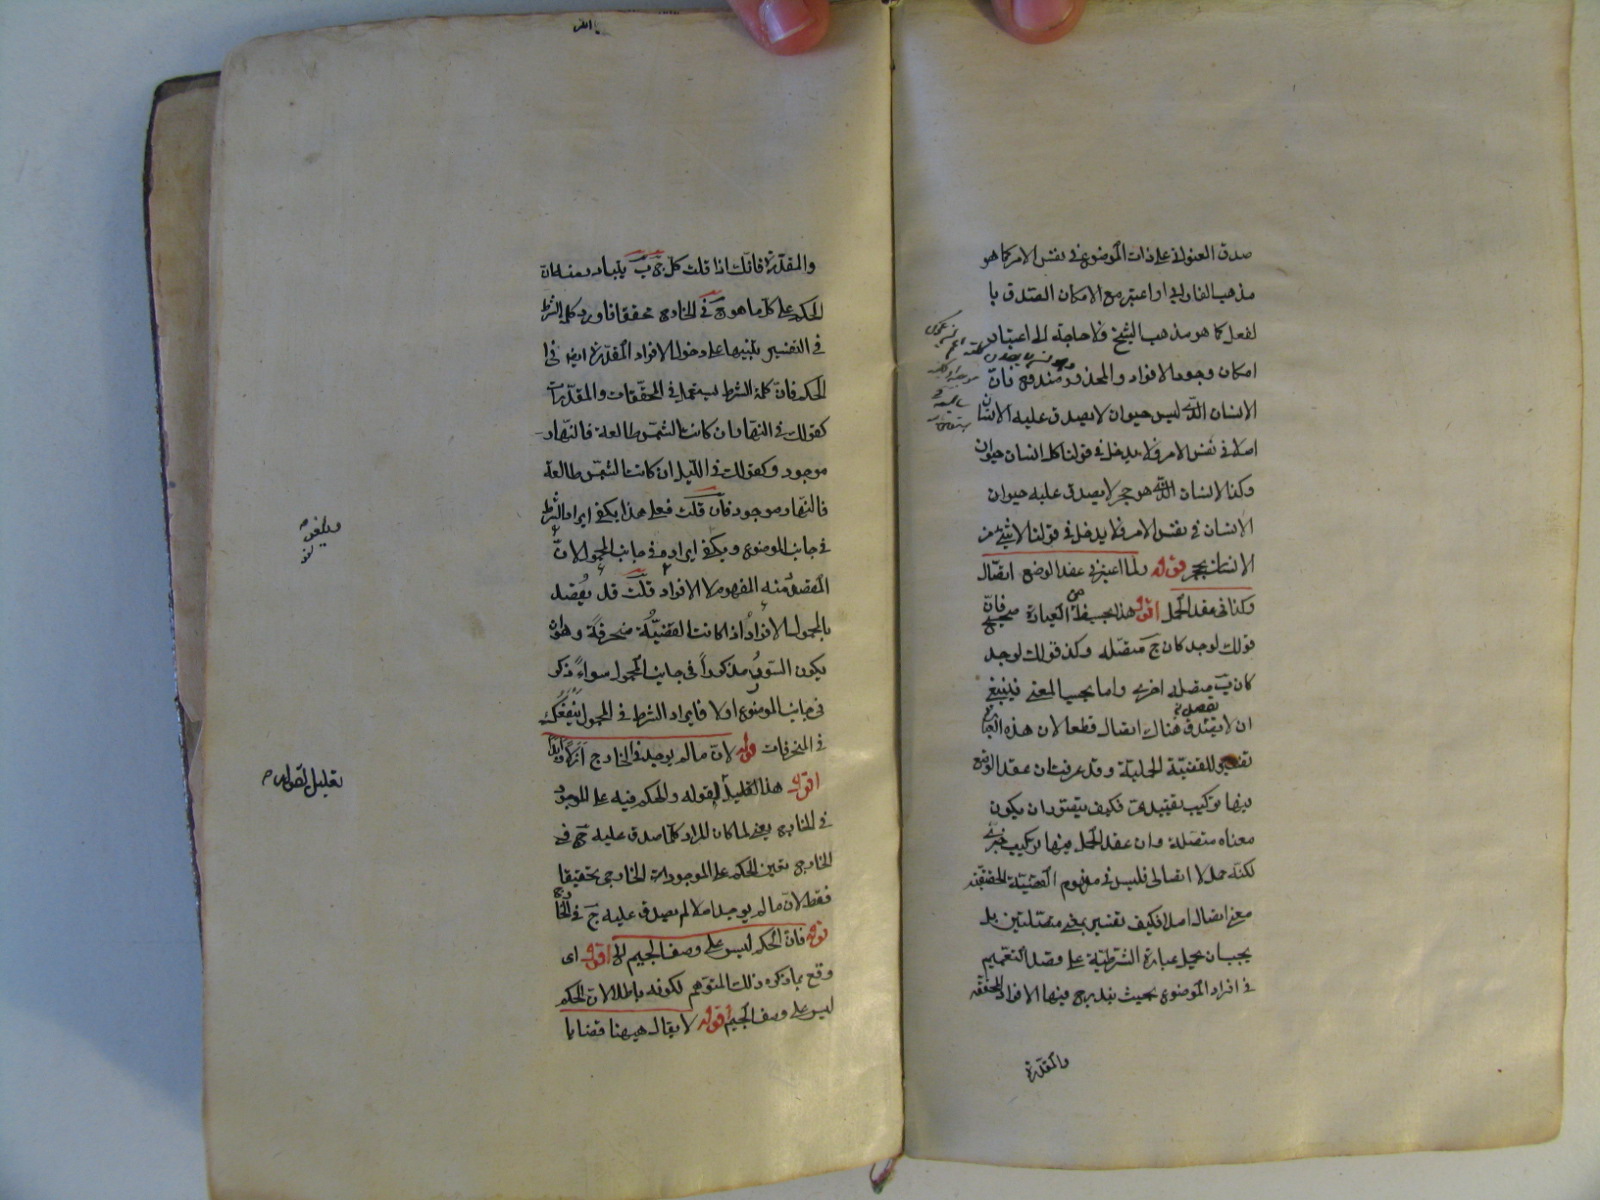 صدق العنوانى على ذات الموضوع فى نفس الامر كما هو
مذهب الفارابى او اعتبر مع الامكان الصدق با
لفعل كما هو مذهب الشيخ فلا حاجة الى اعتبار
امكان وجود الافراد والمحذور مندفع فان
الانسان الذى ليس حيوان لا يصدق عليه الانسان
اصلا فى نفس الامر فلا يدخل فى قولنا كل انسان حيوان
وكذا الانسان الذى هو حجر لا يصدق عليه حيوان
الانسان فى نفس الامر فلا يدخل فى قولنا لا شئ من
الانسان بحجر قوله ولما اعتبر فى عقد الوضع اتصال
وكذا فى عقد الحمل اقول هذا بحسب العبارة صحيح فان
قولك لو وجد كان ج متصلة وكذا قولك لو وجد
كان ب متصلة اخرى واما بحسب المعنى فينبغى
ان لا يقصد هناك اتصال قطعا لان هذه
للقضية الحملية وقد عرفت ان عقد الوضع
فيها تركيب تقييدى فكيف يتصور ان يكون
معناه متصلة وان عقد الحمل فيها تركيب خبرى
لكنه حمل لا اتصالى فليس فى مفهوم القضية الحقيقية
معنى اتصال اصلا فكيف تفسير بمعنى متصلتين بل
يجب ان يحمل عبارة الشرطية على قصد التعميم
فى افراد الموضوع بحيث يندرج فيها الافراد المحققة
والمقدرة
والمقدرة فانك اذا قلت كل ج ب يتبادر منه ان
الحكم على كل ما هو ج فى الخارج محققا فاورد كلمة الشرط
فى التفسير تنبيها على دخول الافراد المقدرة ايضا فى
الحكم فان كلمة الشرط يستعمل فى المحققات والمقدرات
كقولك فى النهار ان كانت الشمس طالعة فالنهار
موجود وكقولك فى الليل ان كانت الشمس طالعة
فالنهار موجود فان قلت فعلى هذا يكفى ايراد الشرط
فى جانب الموضوع ويكفى ايراده فى جانب المحمول لان
المقصود منه المفهوم لا الافراد قلت قد يقصد
بالمحمول الافراد اذا كانت القضية منحرفة وهو ان
يكون السور مذكورا فى جانب المحمول سواء ذكر
فى جانب الموضوع او لا فايراد الشرط فى المحمول ينفعك
فى المنحرفات قوله لان ما لم يوجد فى الخارج ازلا وابدا
اقول هذا تعليل لقوله والحكم فيه على الموجود
فى الخارج يعنى لما كان المراد كلما صدق عليه ج فى
الخارج تعين الحكم على الموجودات الخارجى تحقيقا
فقط لان ما لم يوجد اصلا لم يصدق عليه ج فى الخارج
قوله فان الحكم ليس على وصف الجيم الخ اقول اى
وقع بما ذكره ذلك المتوهم لكونه باطلا لان الحكم
ليس على وصف الجيم قوله لا يقال هيهنا قضايا
تعليل لقوله